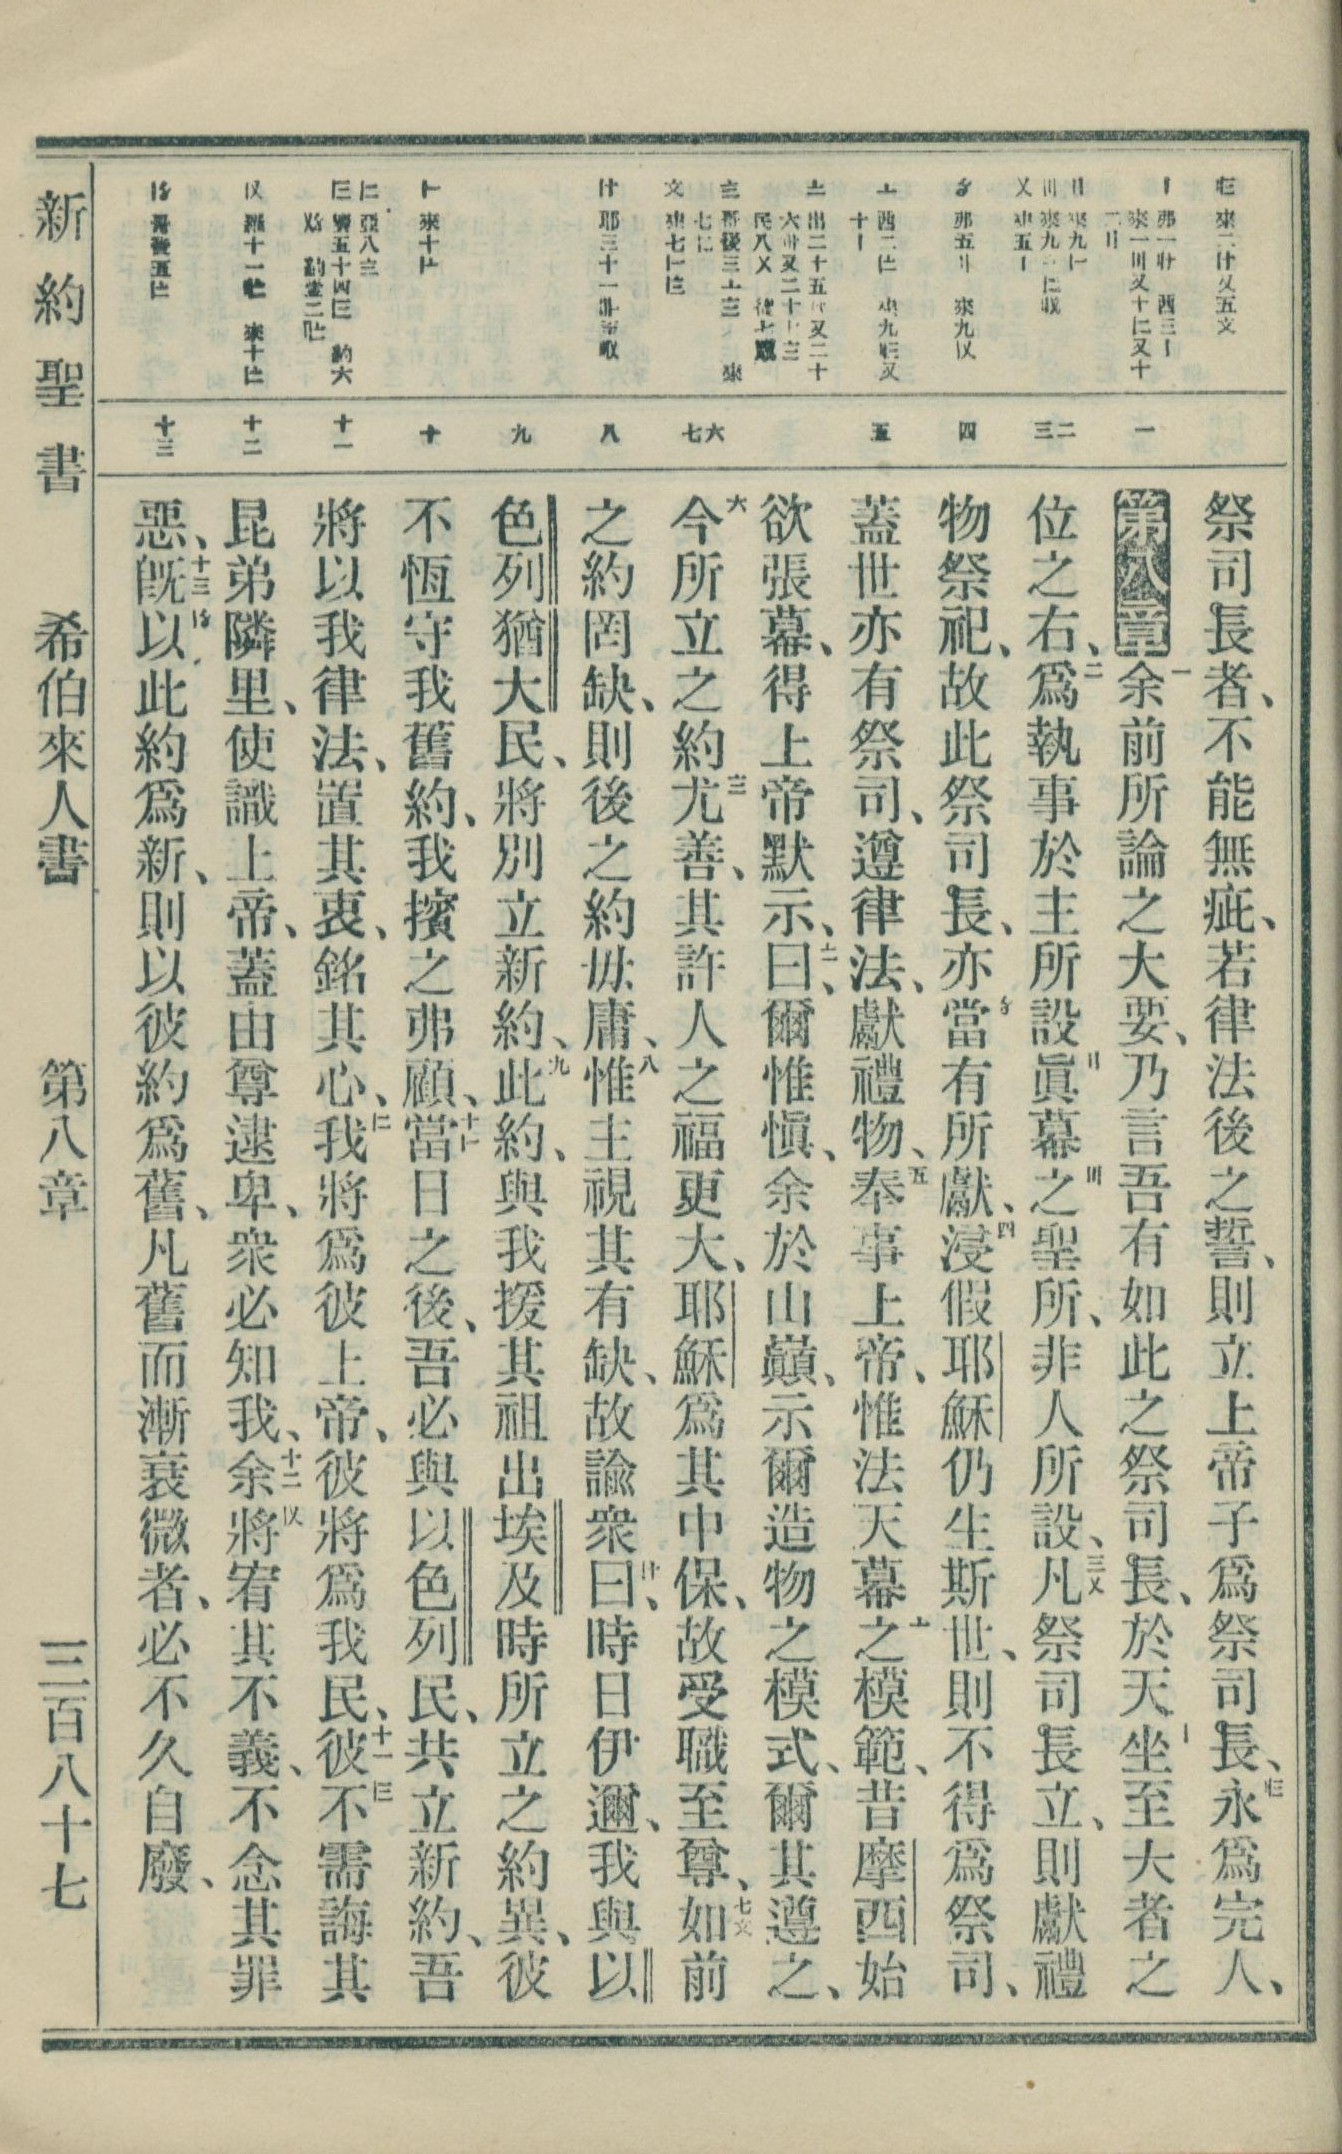 祭司長者、不能無疵、若律法後之誓、則立上帝子爲祭司長、永爲完人、
第八章一余前所論之大要、乃言吾有如此之祭司長、於天坐至大者之
位之右、二爲執事於主所設眞幕之聖所、非人所設、三凡祭司長立、則獻禮
物祭祀、故此祭司長、亦當有所獻、四浸假耶穌仍生斯世、則不得爲祭司、
蓋世亦有祭司、遵律法、獻禮物、五奉事上帝、惟法天幕之模範、昔摩西始
欲張幕、得上帝默示、曰、爾惟愼、余於山巓、示爾造物之模式、爾其遵之、
六今所立之約尤善、其許人之福更大、耶穌爲其中保、故受職至尊、七如前
之約罔缺、則後之約毋庸、八惟主視其有缺、故諭衆曰、時日伊邇、我與以
色列猶大民、將別立新約、九此約、與我援其祖出埃及時所立之約異、彼
不恆守我舊約、我擯之弗顧、十當日之後、吾必與以色列民、共立新約、吾
將以我律法、置其衷、銘其心、我將爲彼上帝、彼將爲我民、十一彼不需誨其
昆弟隣里、使識上帝、蓋由尊逮卑、衆必知我、十二余將宥其不義、不念其罪
惡、十三旣以此約爲新、則以彼約爲舊、凡舊而漸衰微者、必不久自廢、
一
二三
四
五
六七
八
九
十
十一
十二
十三
新約聖書 希伯來人書 第八章 三百八十七